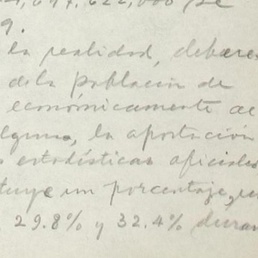 9.
la realidad, debere
de la población de
económicamente ac
la aportación
estadísticas oficiales
tuye un porcentaje
29.8% y 32.4% duran